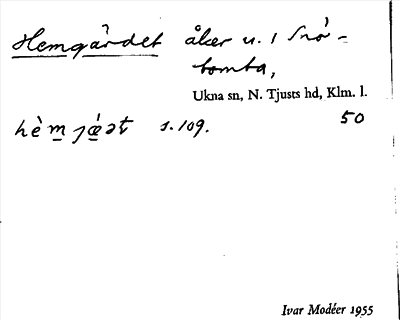 Hemgärdet åker u. 1 Snö-
tomta,
Ukna sn, N. Tjusts hd, Klm. l.
50
s. 109.
Ivar Modéer 1955